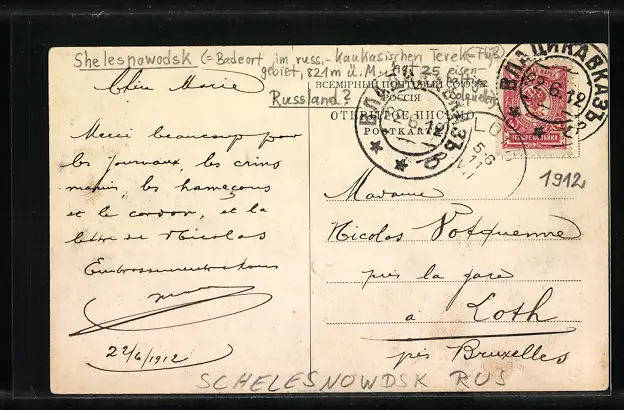 Shelesnowodsk (= Badeort im russ.-Kaukasischen Terek-
gebiet, 821 m ü. M., mit 25 eisen-
Russland?
ВСЕМІРНЫЙ ПОЧТОВЫЙ СОЮЗЪ
РОССІЯ
ОТКРЫТОЕ ПИСЬМО
POSTKARTE
ВЛАДИКАВКАЗЪ
22.6.12
ВЛАДИКАВКАЗЪ
1912
Chère Marie
Merci beaucoup pour
les journaux, les crins
marins, les hameçons
et le cordon, et la
lettre de Nicolas
22/6/1912
Madame
Nicolas
près la gare
à Loth
près Bruxelles
SCHELESNOWDSK RUS